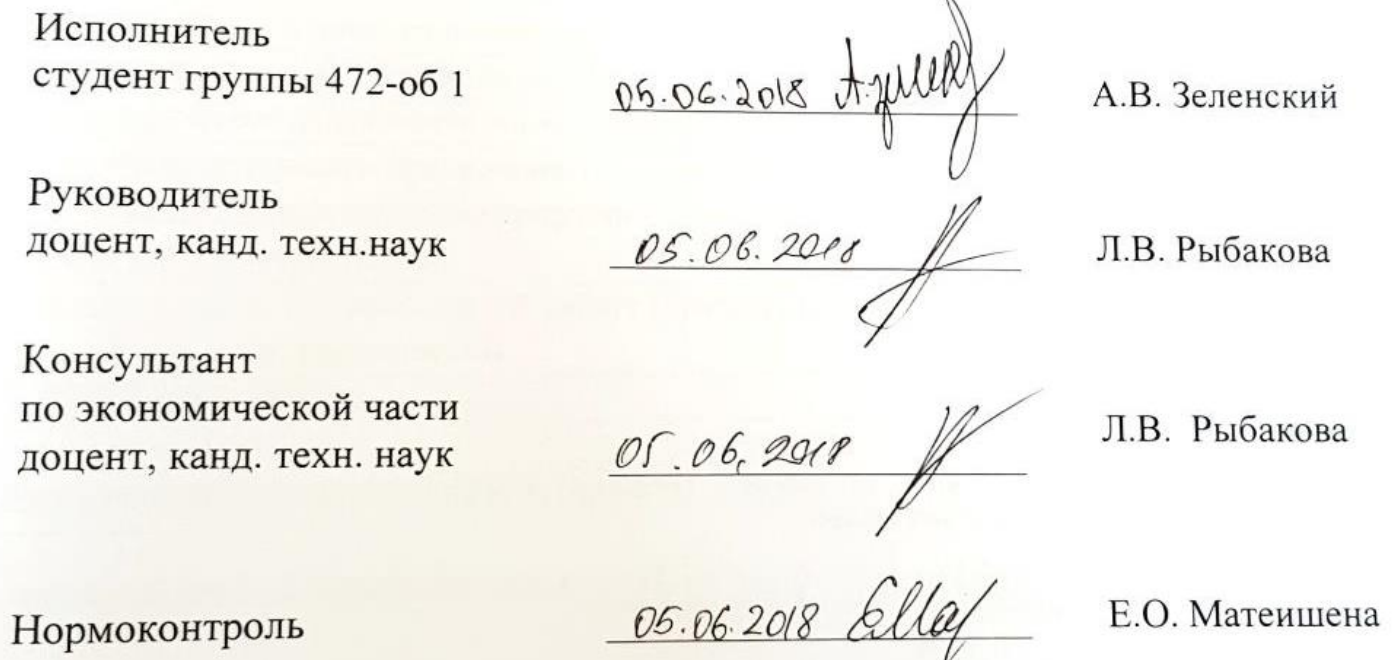 Исполнитель
студент группы 472-об 1
05.06.2018
А.В. Зеленский
Руководитель
доцент, канд. техн.наук
05.06.2018
Л.В. Рыбакова
Консультант
по экономической части
доцент, канд. техн. наук
05.06.2018
Л.В. Рыбакова
Нормоконтроль
05.06.2018
Е.О. Матеишена